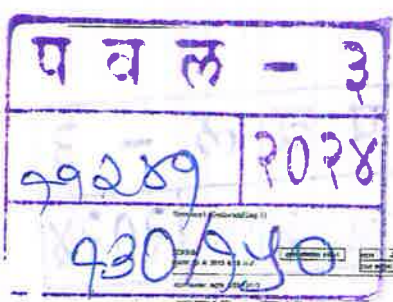 प व ल - ३
११२४१ २०२४
१३०/१५०